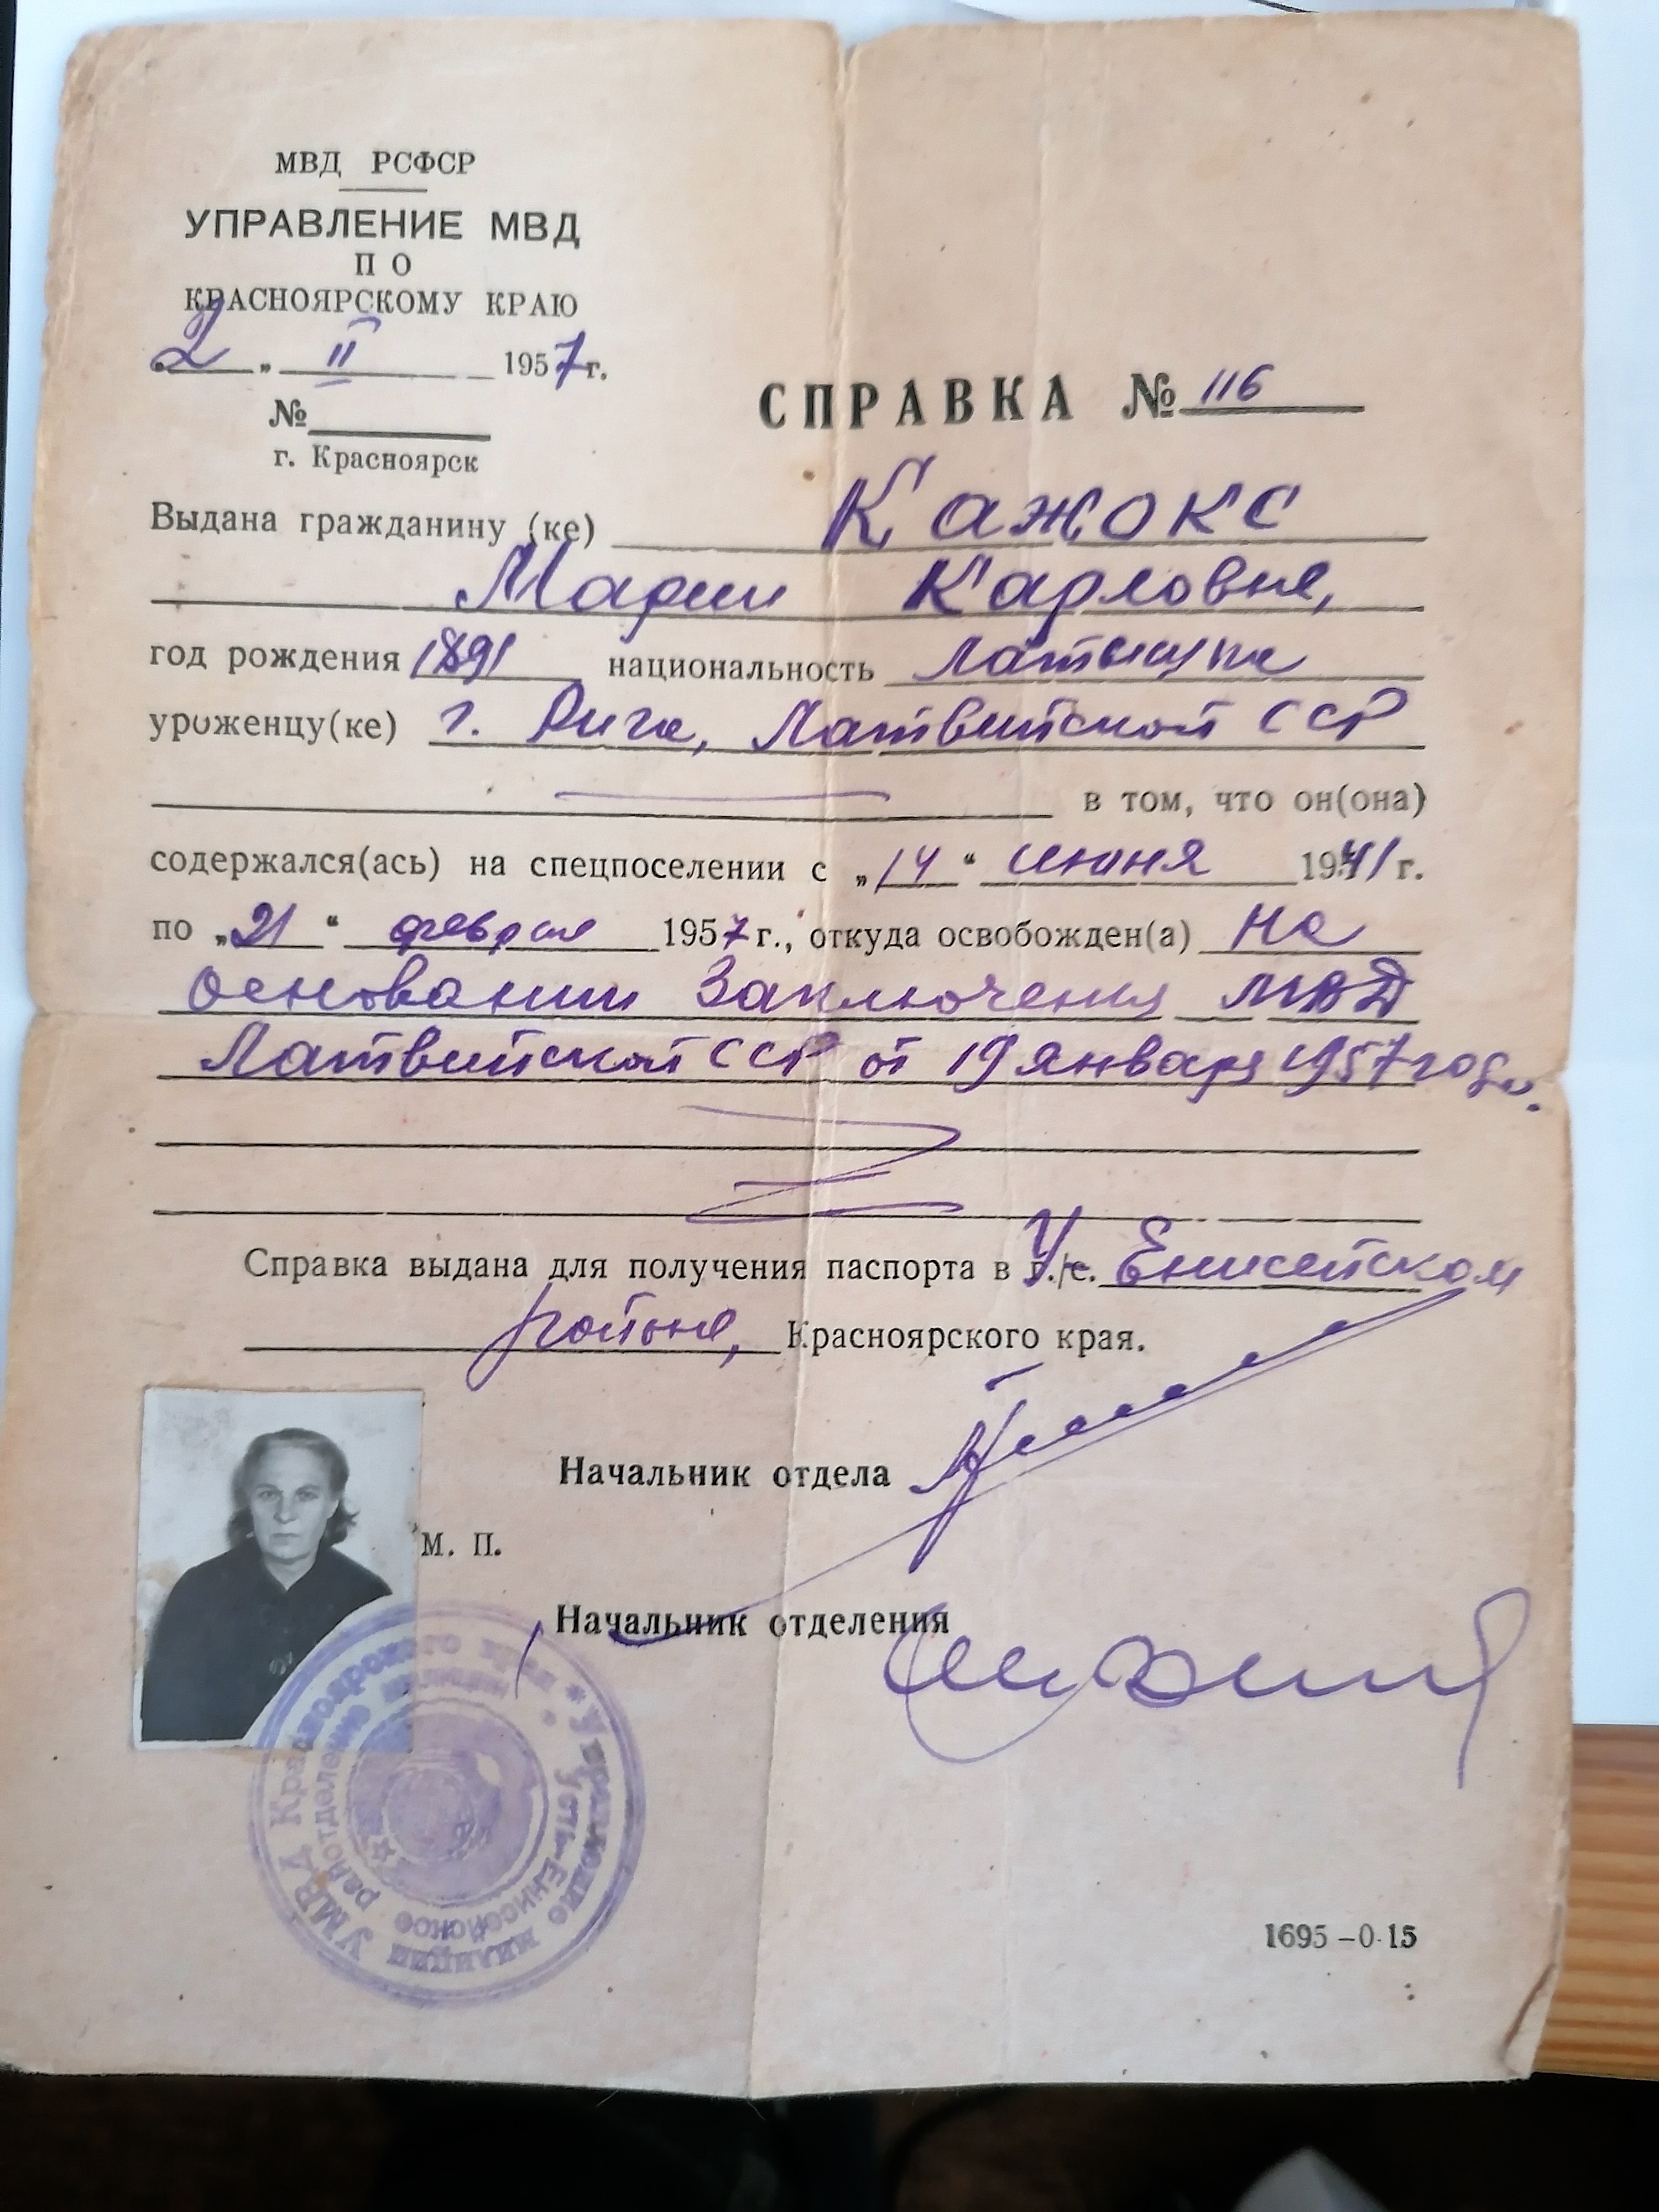 МВД РСФСР
УПРАВЛЕНИЕ МВД
ПО
КРАСНОЯРСКОМУ КРАЮ
„2„ II 1957г.
№
г. Красноярск
СПРАВКА № 116
Выдана гражданину (ке) Кажокс
Марии Карловне,
год рождения 1891 национальность латышка
уроженцу(ке) г. Рига, Латвийской ССР
в том, что он(она)
содержался(ась) на спецпоселении с „14“ июня 1941г.
по „21“ февраля 1957г., откуда освобожден(а) на
основании Заключения МВД
Латвийской ССР от 19 января 1957 года.
Справка выдана для получения паспорта в У-Енисейском
районе, Красноярского края.
Начальник отдела
М. П.
Начальник отделения
Управление милиции УМВД Красноярского края *
Усть-Енисейское райотделение милиции
1695–0·15